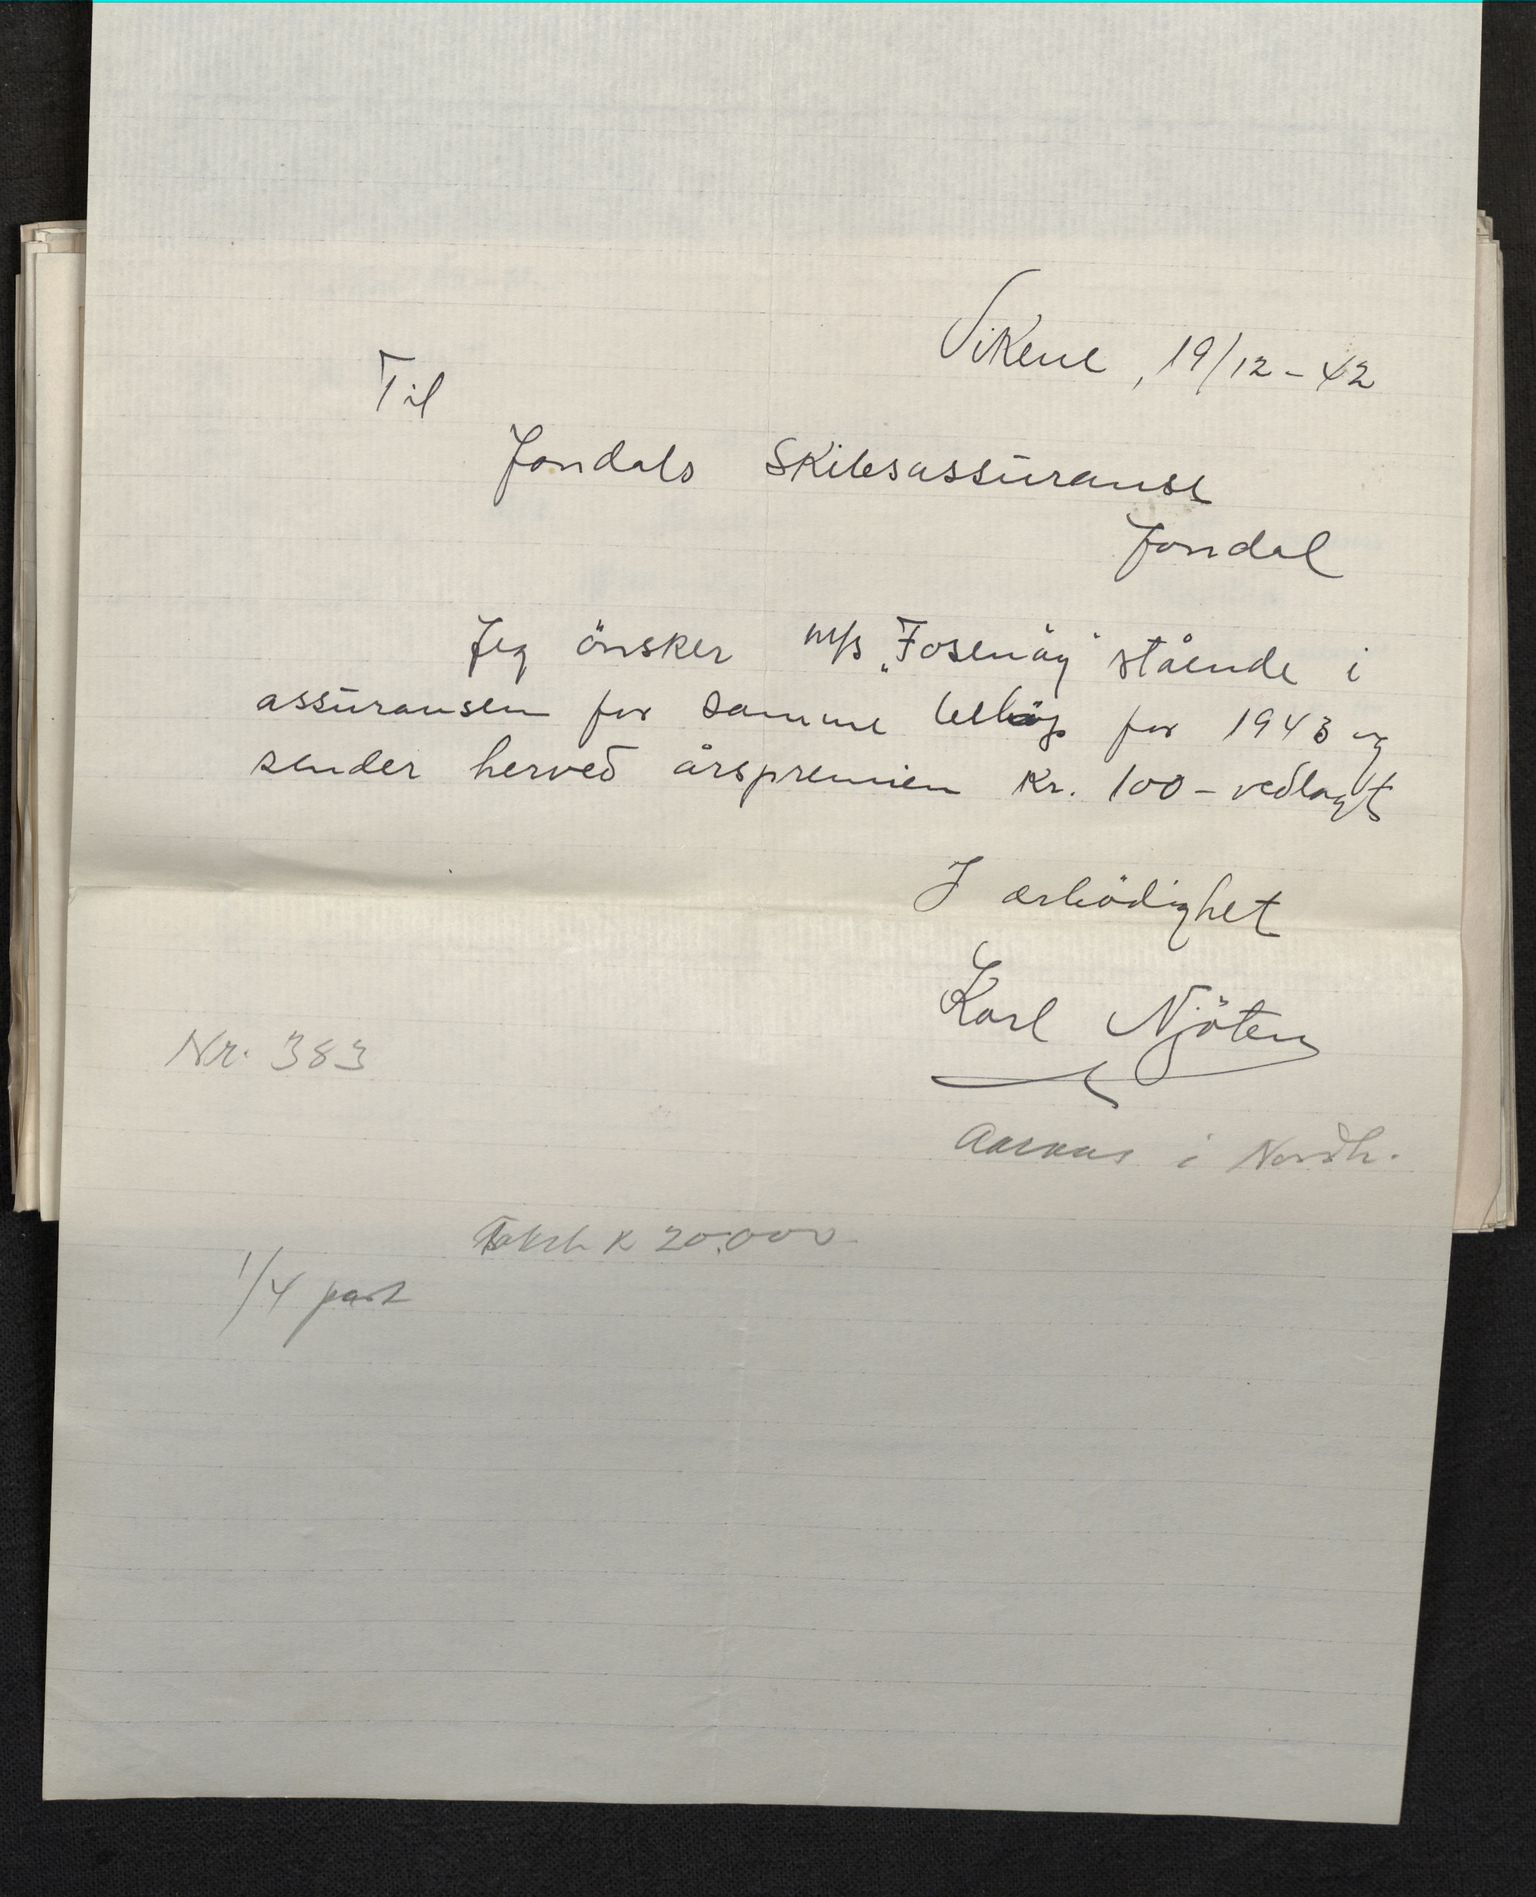 Vikene, 19/12-42
Til
Jondals Skibsassuranse
Jondal
Jeg önsker m/s „Fosenöy" stående i
assuransen for samme belöp for 1943 og
sender herved årspremien kr. 100- vedlagt
I ærbödighet
Karl Njöten
Nr. 383
i Nordh.
Takst K 20.000
1/4 part